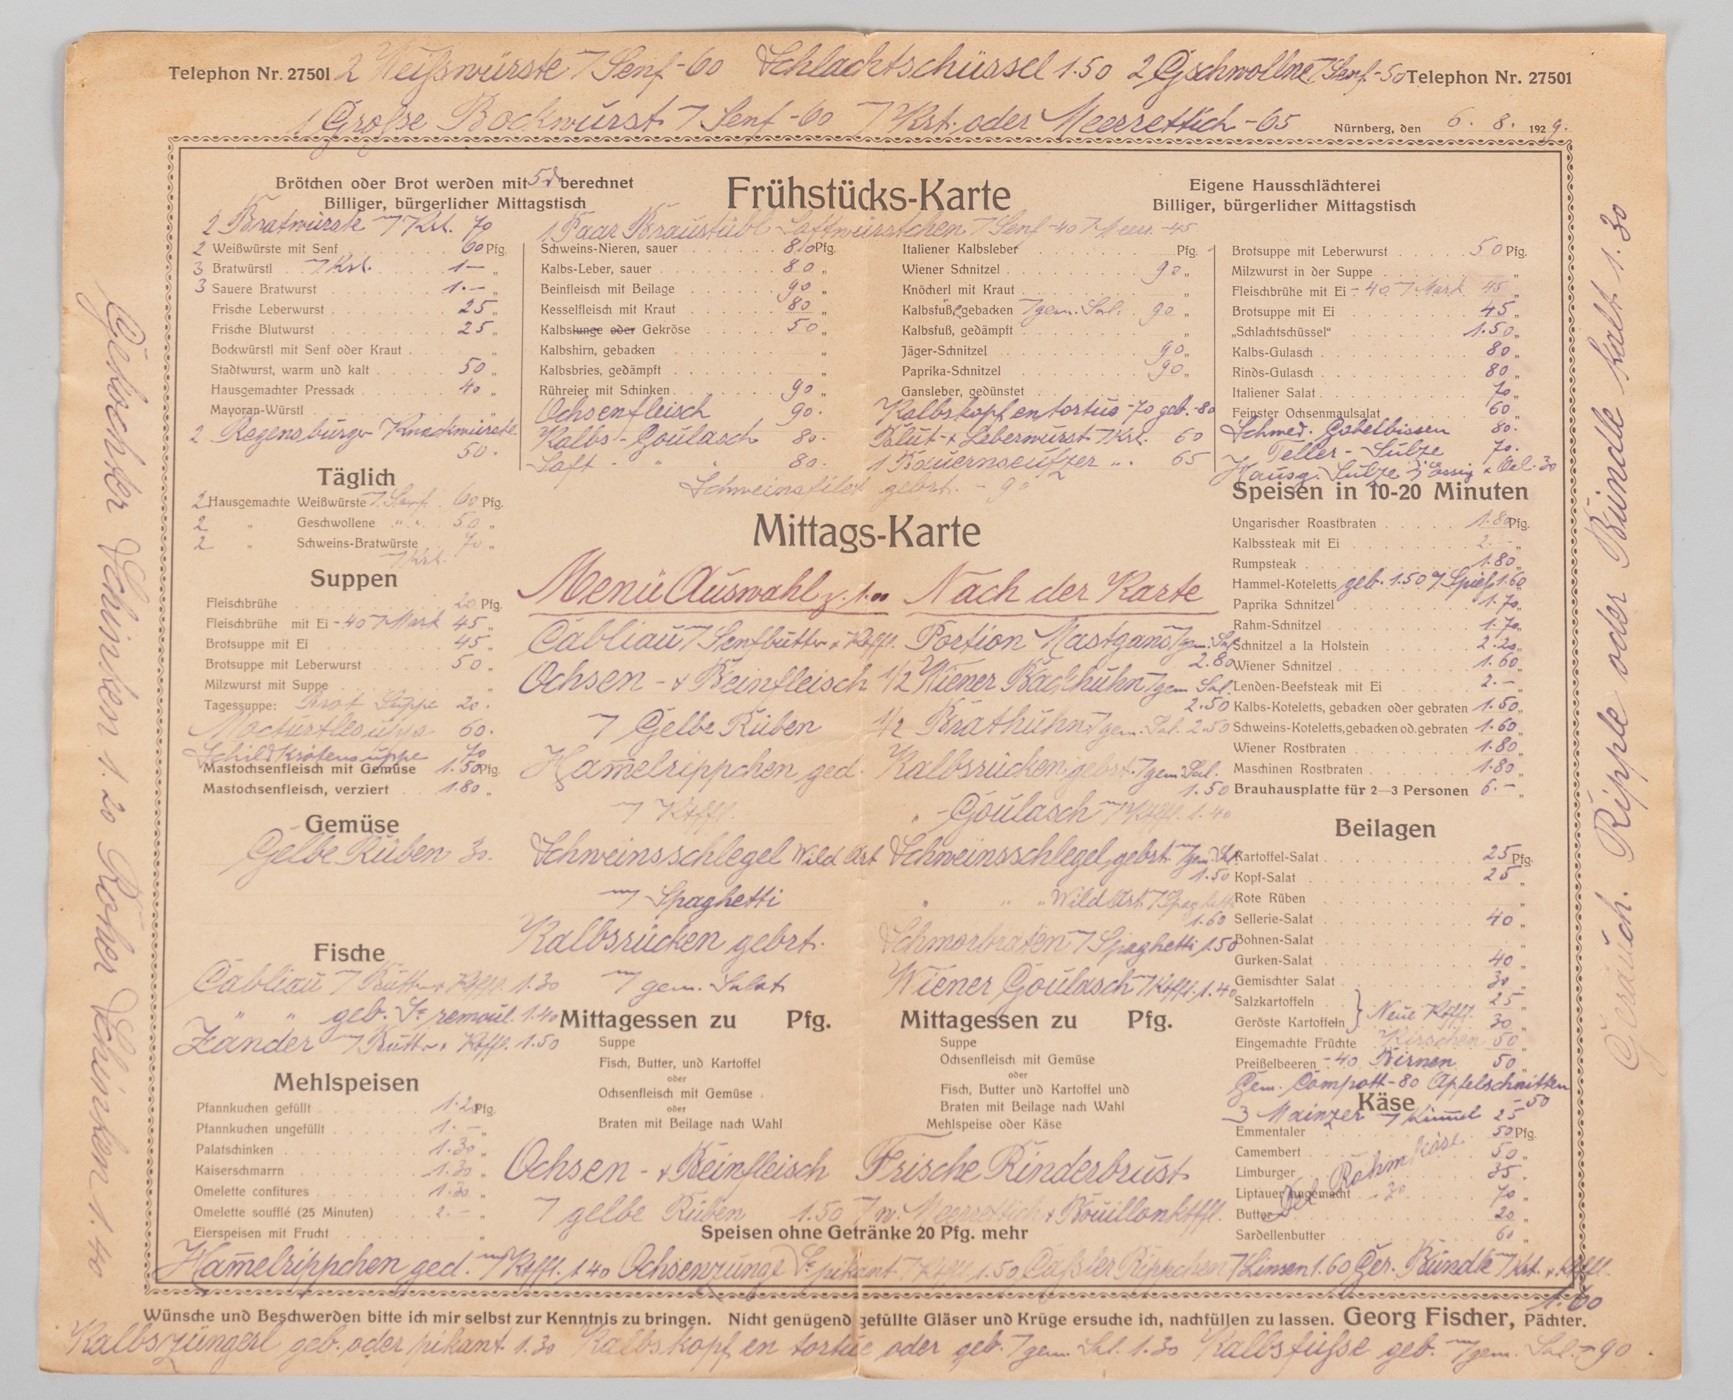 Telephon Nr. 27501 2 Weißwürste 7 Senf -60 Schlachtschüssel 1.50 2 Gschwollne 7 Senf -50 Telephon Nr. 27501
1 Große Bockwurst 7 Senf -60 7 Krt. oder Meerrettich -65 Nürnberg, den 6. 8. 1929.
Gekochter Schinken 1.20 Roher Schinken 1.40
Brötchen oder Brot werden mit 5 berechnet
Billiger, bürgerlicher Mittagstisch
Frühstücks-Karte
Eigene Hausschlächterei
Billiger, bürgerlicher Mittagstisch
2 Bratwürste 7 Krt. 70
2 Weißwürste mit Senf 60 Pfg.
3 Bratwürstl 7 Krt. 1.— „
3 Sauere Bratwurst 1.— „
Frische Leberwurst 25 „
Frische Blutwurst 25 „
Bockwürstl mit Senf oder Kraut „
Stadtwurst, warm und kalt 50 „
Hausgemachter Pressack 40 „
Mayoran-Würstl „
2 Regensburger Knackwürste
50.
1 Paar Braustübl Saftwürstchen 7 Senf -40 7 Meerr. -45
Schweins-Nieren, sauer 80 Pfg.
Kalbs-Leber, sauer 80 „
Beinfleisch mit Beilage 90 „
Kesselfleisch mit Kraut 80 „
Kalbslunge oder Gekröse 50 „
Kalbshirn, gebacken „
Kalbsbries, gedämpft „
Rühreier mit Schinken 90 „
Ochsenfleisch 90.
Kalbs-Goulasch 80.
Saft - „ 80.
Italiener Kalbsleber Pfg.
Wiener Schnitzel 90 „
Knöcherl mit Kraut „
Kalbsfüße gebacken 7 gem. Sal. 90 „
Kalbsfuß, gedämpft „
Jäger-Schnitzel 90 „
Paprika-Schnitzel 90 „
Gansleber, gedünstet „
Kalbskopf en tortue -70 geb. -80
Blut- + Leberwurst 7 Krt. 60
1 Bauernseufzer „. 65
Schweinsfilet gebrt. - 90
Brotsuppe mit Leberwurst 50 Pfg.
Milzwurst in der Suppe „
Fleischbrühe mit Ei -40 7 Mark 45 „
Brotsuppe mit Ei 45 „
„Schlachtschüssel“ 1.50 „
Kalbs-Gulasch 80 „
Rinds-Gulasch 80 „
Italiener Salat 70 „
Feinster Ochsenmaulsalat 60 „
Schwed. Gabelbissen 80.
Teller-Sulze 70.
Hausg. Sulze 7 Essig + Oel. 30
Täglich
2 Hausgemachte Weißwürste 7 Senf. 60 Pfg.
2 „ Geschwollene „ „ 50 „
2 „ Schweins-Bratwürste 70 „
7 Krt.
Suppen
Fleischbrühe 20 Pfg.
Fleischbrühe mit Ei -40 7 Mark 45 „
Brotsuppe mit Ei 45 „
Brotsuppe mit Leberwurst 50 „
Milzwurst mit Suppe „
Tagessuppe: Brot Suppe 20.
Mocturtlesuppe 60.
Schildkrötensuppe 70
Mastochsenfleisch mit Gemüse 1.50 Pfg.
Mastochsenfleisch, verziert 1.80 „
Gemüse
Gelbe Rüben 30.
Fische
Cabliau 7 Butter + Ktffl. 1.30
„ „ geb. Sc. remoul. 1.40
Zander 7 Butter + Ktffl. 1.50
Mehlspeisen
Pfannkuchen gefüllt 1.20 Pfg.
Pfannkuchen ungefüllt 1.— „
Palatschinken 1.30 „
Kaiserschmarrn 1.30 „
Omelette confitures 1.30 „
Omelette soufflé (25 Minuten) 2.— „
Eierspeisen mit Frucht „
Mittags-Karte
Menü Auswahl z. 1.00
Cabliau 7 Senfbutter + Ktffl.
Ochsen- + Beinfleisch
7 Gelbe Rüben
Hamelrippchen ged.
7 Ktffl.
Schweinsschlegel Wild Art
7 Spaghetti
Kalbsrücken gebrt.
7 gem. Salat
Nach der Karte
Portion Mastgans 7 gem. Sal.
2.80
1/2 Wiener Backhuhn 7 gem. Sal.
2.50
1/2 Brathuhn 7 gem. Sal. 2.50
Kalbsrücken gebrt. 7 gem. Sal.
1.50
„ -Goulasch 7 Ktffl. 1.40
Schweinsschlegel gebrt. 7 gem. Sal.
1.50
„ „ Wild Art 7 Spaghetti
1.60
Schmorbraten 7 Spaghetti 1.50
Wiener Goulasch 7 Ktffl. 1.40
Mittagessen zu Pfg.
Suppe
Fisch, Butter, und Kartoffel
oder
Ochsenfleisch mit Gemüse .
oder
Braten mit Beilage nach Wahl
Ochsen- + Beinfleisch
7 gelbe Rüben 1.50
Mittagessen zu Pfg.
Suppe
Ochsenfleisch mit Gemüse
oder
Fisch, Butter und Kartoffel und
Braten mit Beilage nach Wahl
Mehlspeise oder Käse
Frische Rinderbrust
7 w. Meerrettich + Bouillonktffl.
Speisen ohne Getränke 20 Pfg. mehr
Speisen in 10-20 Minuten
Ungarischer Roastbraten 1.80 Pfg.
Kalbssteak mit Ei 2.— „
Rumpsteak 1.80 „
Hammel-Koteletts geb. 1.50 a Spieß 1.60
Paprika Schnitzel 1.70 „
Rahm-Schnitzel 1.70 „
Schnitzel a la Holstein 2.20 „
Wiener Schnitzel 1.60 „
Lenden-Beefsteak mit Ei 2.— „
Kalbs-Koteletts, gebacken oder gebraten 1.50 „
Schweins-Koteletts, gebacken od. gebraten 1.60 „
Wiener Rostbraten 1.80 „
Maschinen Rostbraten 1.80 „
Brauhausplatte für 2—3 Personen 6.— „
Beilagen
Kartoffel-Salat 25 Pfg.
Kopf-Salat 25 „
Rote Rüben „
Sellerie-Salat 40 „
Bohnen-Salat „
Gurken-Salat 40 „
Gemischter Salat 30 „
Salzkartoffeln } Neue Ktffl. 25 „
Geröste Kartoffeln 30 „
Eingemachte Früchte Kirschen 50 „
Preißelbeeren -40 Birnen 50 „
Gem. Compott -80 Apfelschnitten
-50
Käse
3 Mainzer 7 Kümmel 25
Emmentaler 50 Pfg.
Camembert 50 „
Limburger 35 „
Liptauer angemacht 70 „
Rahmkäse -30
Butter 20 „
Sardellenbutter 60 „
Geräuch. Ripple oder Bündle kalt 1.30
Hamelrippchen ged. 7 Ktffl. 1.40 Ochsenzunge Sc. pikant 7 Ktffl. 1.50 Caßler Rippchen 7 Linsen 1.60 Ger. Bündle 7 Krt. + Ktffl.
1.60
Wünsche und Beschwerden bitte ich mir selbst zur Kenntnis zu bringen. Nicht genügend gefüllte Gläser und Krüge ersuche ich, nachfüllen zu lassen. Georg Fischer, Pächter.
Kalbszüngerl geb. oder pikant 1.30 Kalbskopf en tortue oder geb. 7 gem. Sal. 1.30 Kalbsfüße geb. 7 gem. Sal. -90